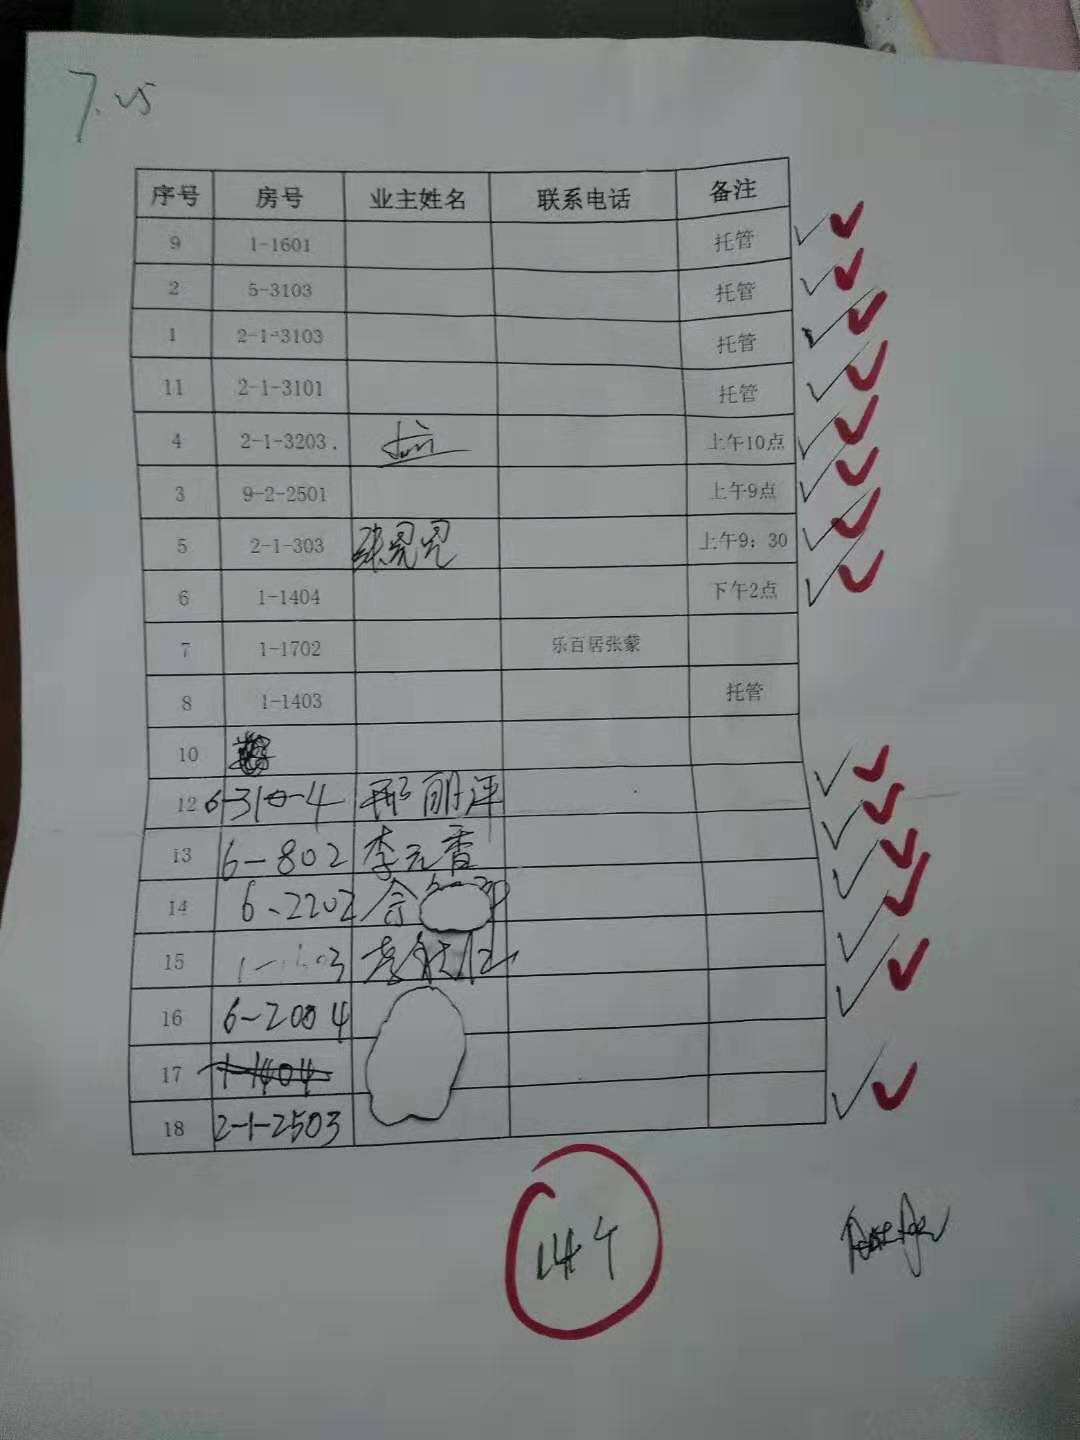 7.25
序号 房号 业主姓名 联系电话 备注
9 1-1601 托管
2 5-3103 托管
1 2-1-3103 托管
11 2-1-3101 托管
4 2-1-3203. 上午10点
3 9-2-2501 上午9点
5 2-1-303 上午9：30
6 1-1404 下午2点
7 1-1702 乐百居张蒙
8 1-1403 托管
10
12 6-310-4 邢丽萍
13 6-802 李元香
14 6-2202
15
16 6-2004
17 1-1404
18 2-1-2503
14个